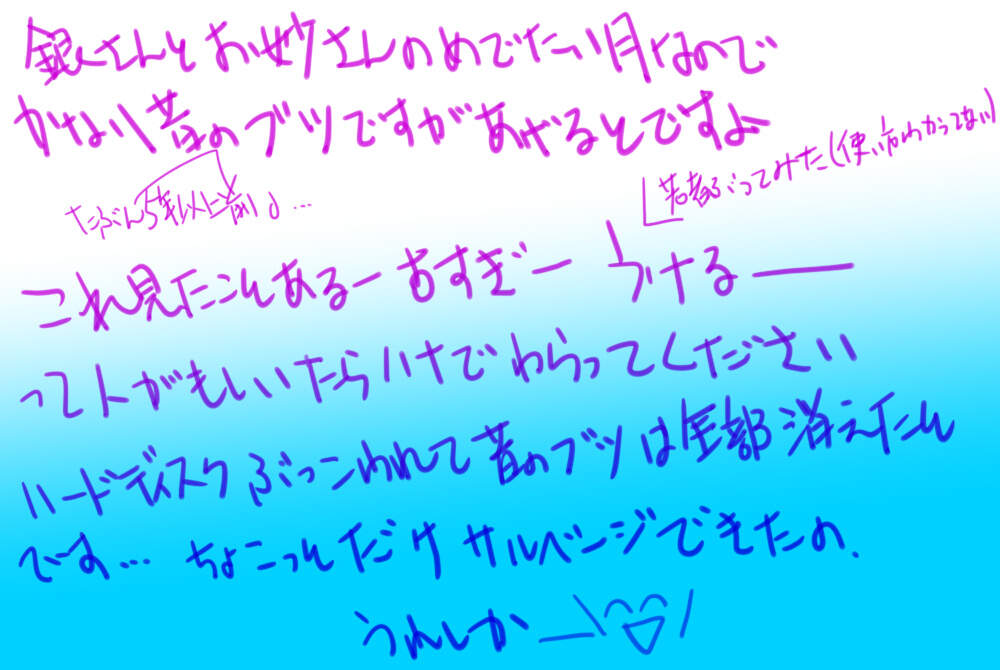 銀さんとお妙さんのめでたい月なので
かなり昔のブツですがあげるとですよ
たぶん5年以上前よ...
若者ぶってみた(使い方わかってない)
これ見たことあるーおすぎー うけるー
って人がもしいたらハナでわらってください
ハードディスクぶっこわれて昔のブツは全部消えたん
です... ちょこっとだけサルベージできたの、
うれしか